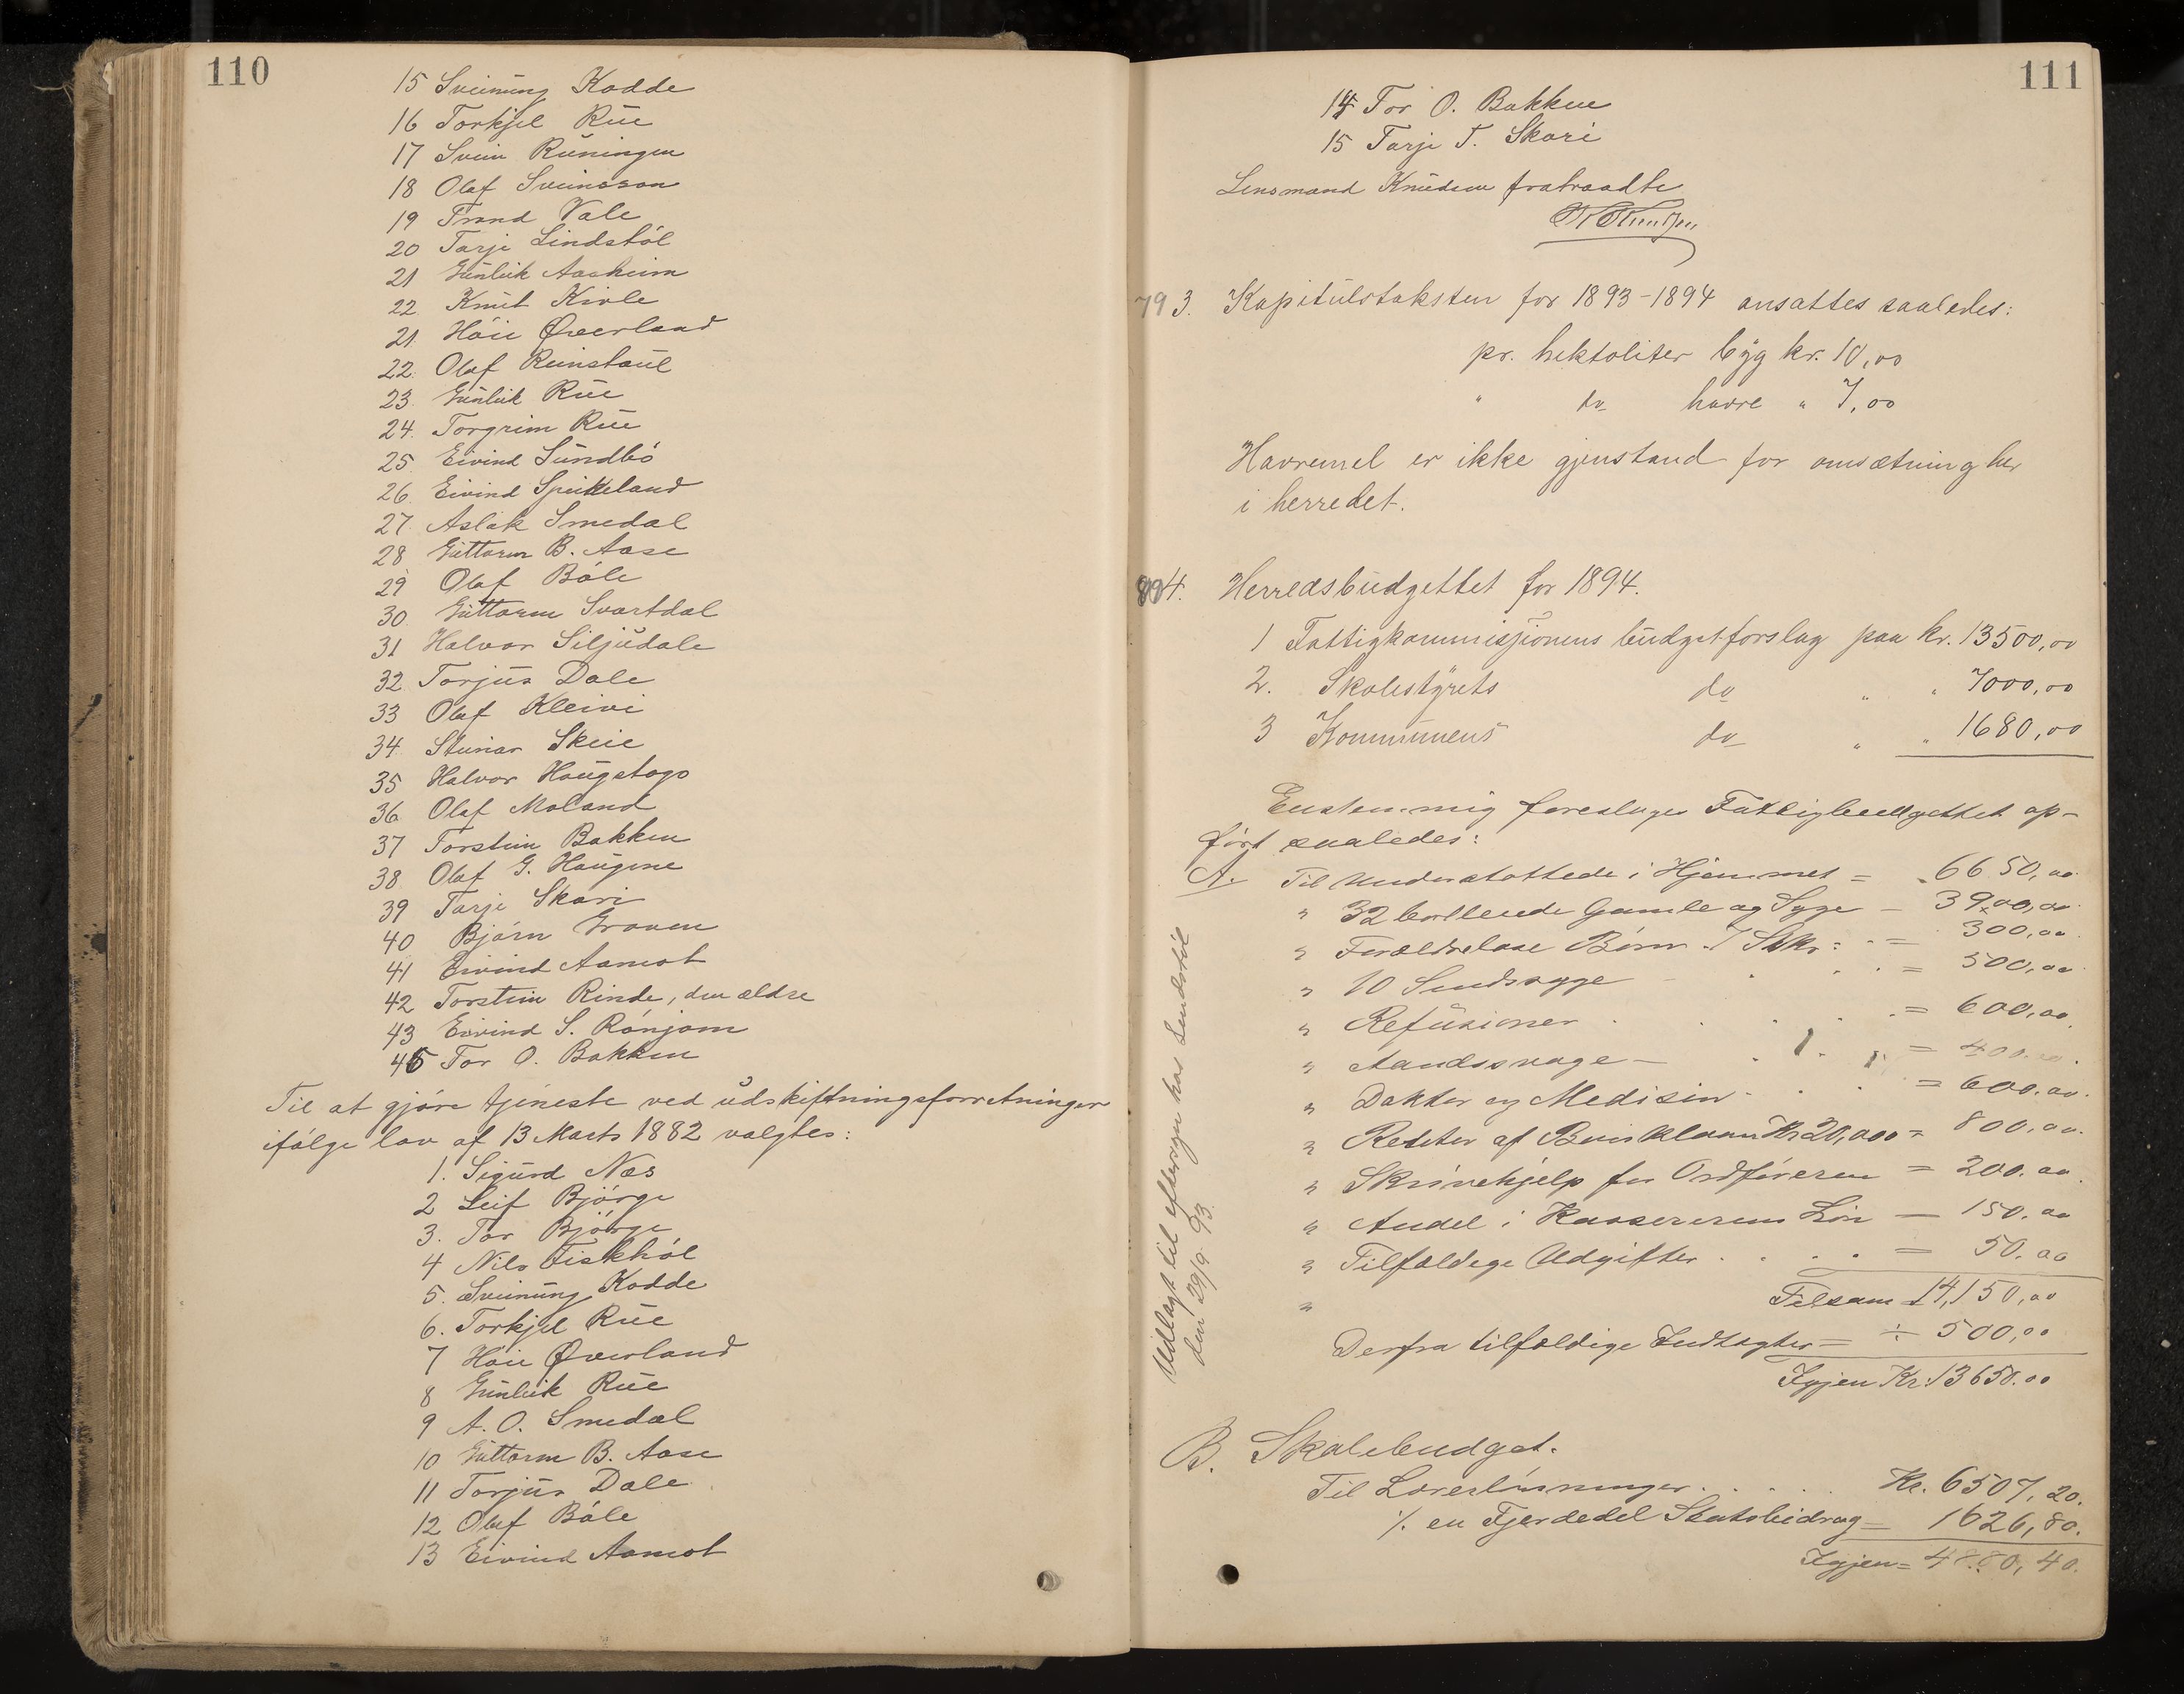 110
15 Sveinung Kodde
16 Torkjel Rue
17 Svein Runingen
18 Olaf Sveinsson
19 Trond Vale
20 Tarje Lindstöl
21 Gunleik Aasheim
22 Knut Kivle
21 Höie Øverland
22. Olaf Reinstaul
23. Gunleik Rue
24. Torgrim Rue
25. Eivind Sundbö
26. Eivind Speikeland
27. Aslak Smedal
28 Guttorm B. Aase
29 Olaf Böle
30. Guttorm Svartdal
31 Halvor Siljudale
32 Torjus Dale
33 Olaf Kleivi
34 Steinar Skeie
35 Halvor Haugstogo
36 Olaf Moland
37 Torstein Bakken
38 Olaf G. Haugene
39 Tarje Skori
40 Björn Groven
41 Eivind Aamot
42 Torstein Rinde, den ældre
43 Eivind S. Rönjom
45 Tor O. Bakken
Til at gjöre tjeneste ved udskiftningsforretninger
ifölge lov af 13 Marts 1882 valgtes:
1. Sigurd Næs
2 Leif Bjørge
3. Tor Bjørge
4 Nils Fiskhöl
5. Sveinung Kodde
6. Torkjel Rue
7 Höie Øverland
8 Gunleik Rue
9 A. O. Smedal
10 Guttorm B. Aase
11 Torjus Dale
12 Olaf Böle
13 Eivind Aamot
111
14 Tor O. Bakken
15 Tarje T. Skori
Lensmand Knudsen fratraadte
79 3. Kapitulstaksten for 1893-1894 ansattes saaledes:
pr. hektoliter byg kr. 10,00
" do havre " 7,00
Havremel er ikke gjenstand for omsætning her
i herredet.
80 4. Herredsbudgettet for 1894.
1 Fattigkommissionens budgetforslag paa kr. 13500,00
2. Skolestyrets do " " 7000,00
3 Kommunens do " " 1680,00
Enstemmig foreslages Fattigbudgettet op-
ført saaledes:
A. Til Understøttede i Hjemmet = 6650,00
" 32 Gamle og Syge = 3900,00
" Forældreløse Börn 7 Stkr: = 300,00
" 10 Sindssyge = 500,00
" Refusioner = 600,00
" Aandssvage = 400.00
" Doktor og Medisin = 600.00
" Renter af Kr 20,000 = 800,00
" Skrivehjelp for Ordföreren = 200.00
" Andel i Kassererens Lön = 150.00
" Tilfældige Udgifter = 50.00
" Tilsam 14,150,00
Derfra tilfældige Indtægter = ÷ 500,00
Igjen Kr: 13650.00
B. Skolebudget.
Til Lærerlønninger Kr. 6507,20.
÷ en Fjerdedel Statsbidrag = 1626,80.
Igjen = 4880,40.
Udlagt til eftersyn hos Lindstöl
den 29/9 93.